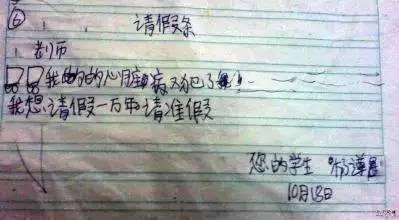 ⑥ 请假条
老师
我的的心脏病又犯了
我想请假一万年请准假
您的学生
10月18日